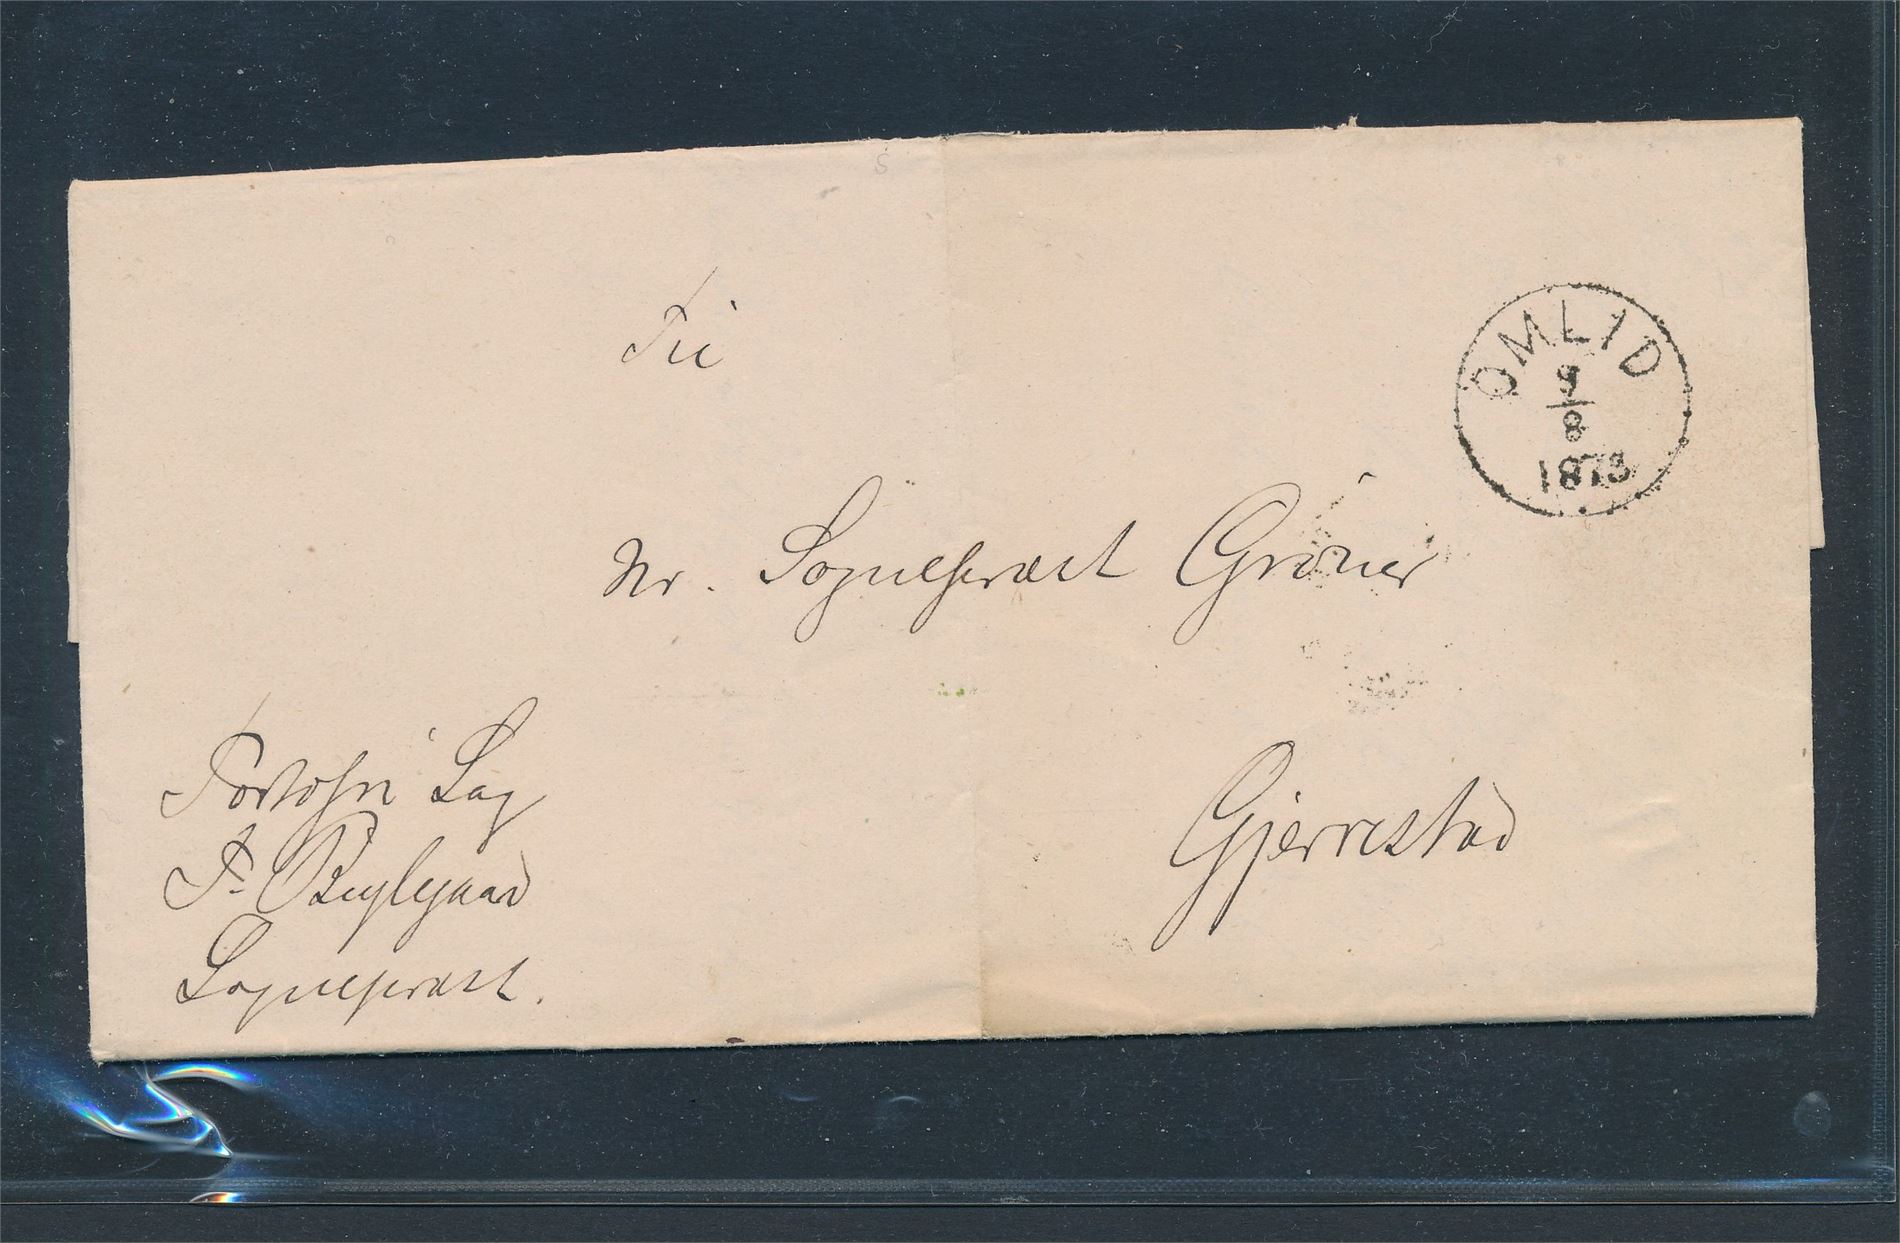 Til
OMLID
9/8
1873
Hr. Sognepræst Grøner
Portofri Sag
Gjerrestad
Sognepræst.